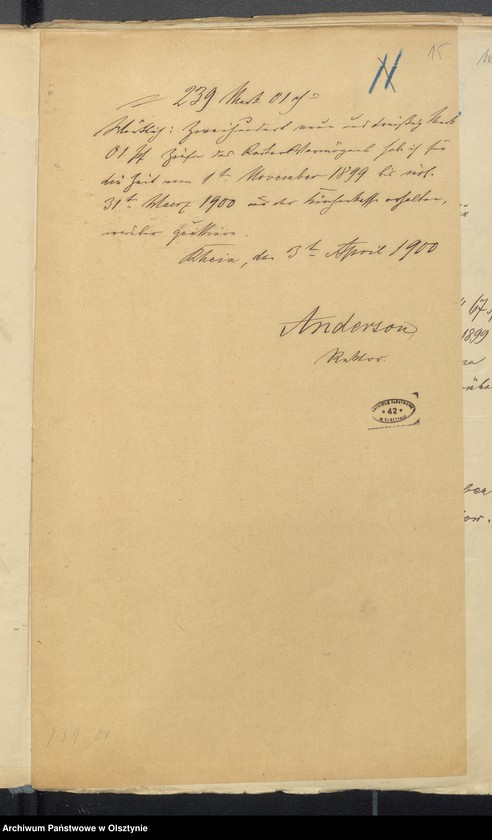 15
239 Mark 01 pf
Wörtlich: Zweihundert neun und dreißig Mark
01 Pf Zinsen des Rektorvermögens hab ich für
die Zeit vom 1ten November 1899 bis
31ten Maerz 1900 aus der Kirchenkasse erhalten,
worüber quittire.
Rhein, den 3ten April 1900
Anderson
Rektor.
ARCHIWUM PAŃSTWOWE
* 42 *
W OLSZTYNIE
67
1899
139 01
Archiwum Państwowe w Olsztynie